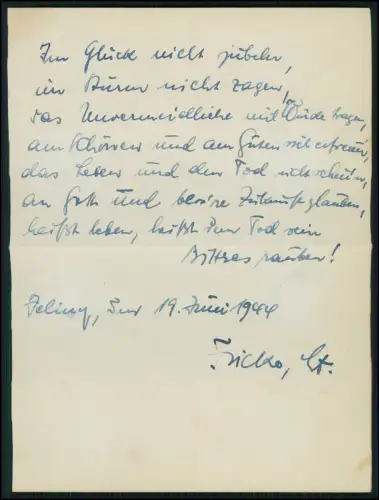 Im Glück nicht jubeln,
im Sturm nicht zagen,
das Unvermeidliche mit Würde tragen,
am Schönen und am Guten sich erfreuen,
das Leben und den Tod nicht scheuen,
an Gott und bess're Zukunft glauben,
heißt leben, heißt dem Tod sein
Bittres rauben!
den 19. Juni 1944